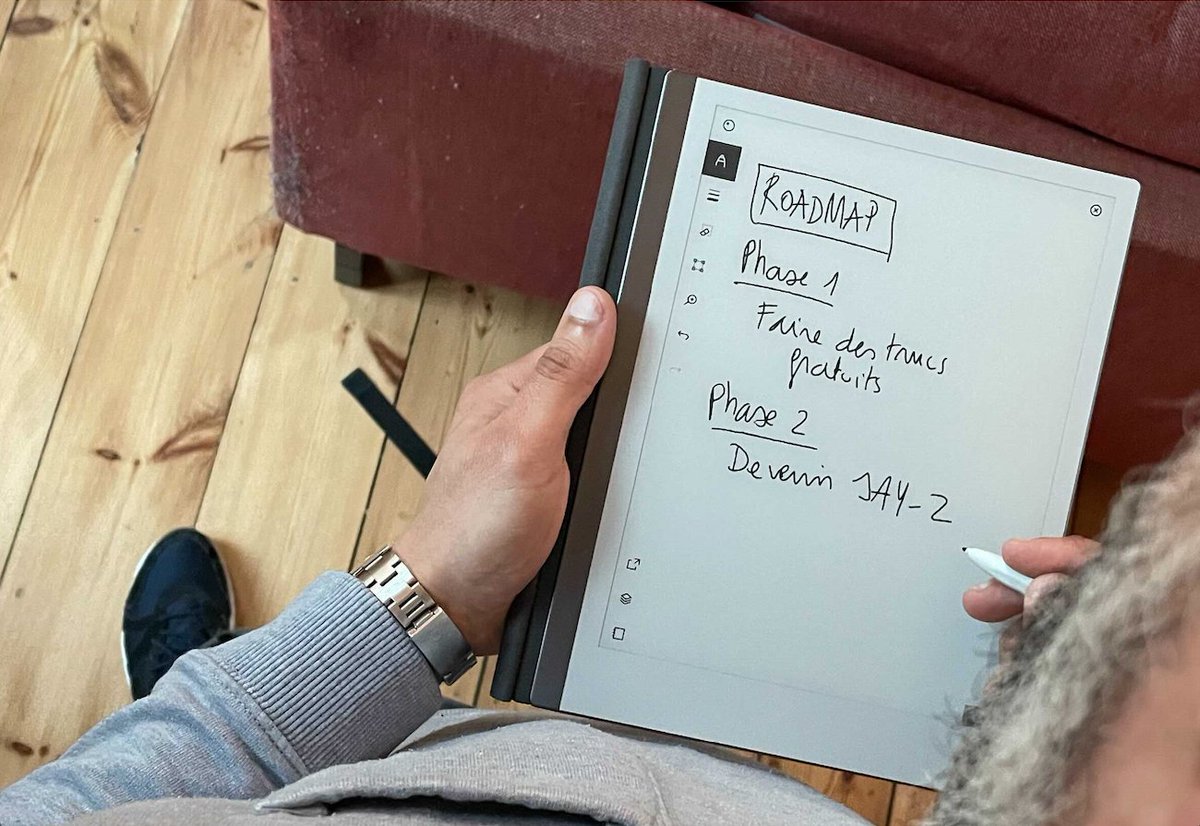 A
ROADMAP
Phase 1
Faire des trucs
gratuits
Phase 2
Devenir JAY-Z